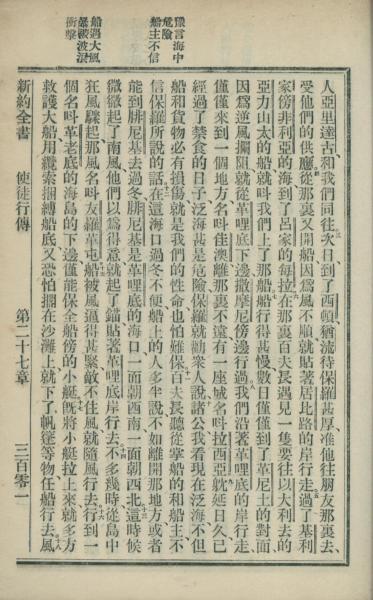 豫言海中
危險
船主不信
船遇大風
屢被波浪
衝擊
人亞里達古和我們同往次日到了西頓猶流待保羅甚厚准他往朋友那裏去
受他們的供應從那裏又開船因爲風不順就貼著居比路的岸行走過了基利
家傍非利亞的海到了呂家的每拉在那裏百夫長遇見一隻要往以大利去的
亞力山太的船就呌我們上了那船船行得甚慢數日僅僅到了革尼土的對面
因爲逆風攔阻就從革哩底下邊撒摩尼傍邊行過我們沿著革哩底的岸行走
僅僅來到一個地方名呌佳澳離那裏不遠有一座城名呌拉西亞就延日久已
經過了禁食的日子泛海甚是危險保羅就勸衆人說諸公我看現在泛海不但
船和貨物必有損傷就是我們的性命也怕難保百夫長聽從掌船的和船主不
信保羅所說的話在這海口過冬不便船上的人多半說不如離開那地方或者
能到腓尼基去過冬腓尼基是革哩底的海口一面朝西南一面朝西北這時候
微微起了南風他們以爲得意就起了錨貼著革哩底岸行去不多幾時從島中
狂風驟起那風名呌友羅革屯船被風逼得甚緊敵不住風就隨風行去行到一
個名呌革老底的海島的下邊僅能保全船傍的小艇旣將小艇拉上來就多方
救護大船用纜索捆縛船底又恐怕擱在沙灘上就下了帆篷等物任船行去風
新約全書 使徒行傳 第二十七章 三百零一